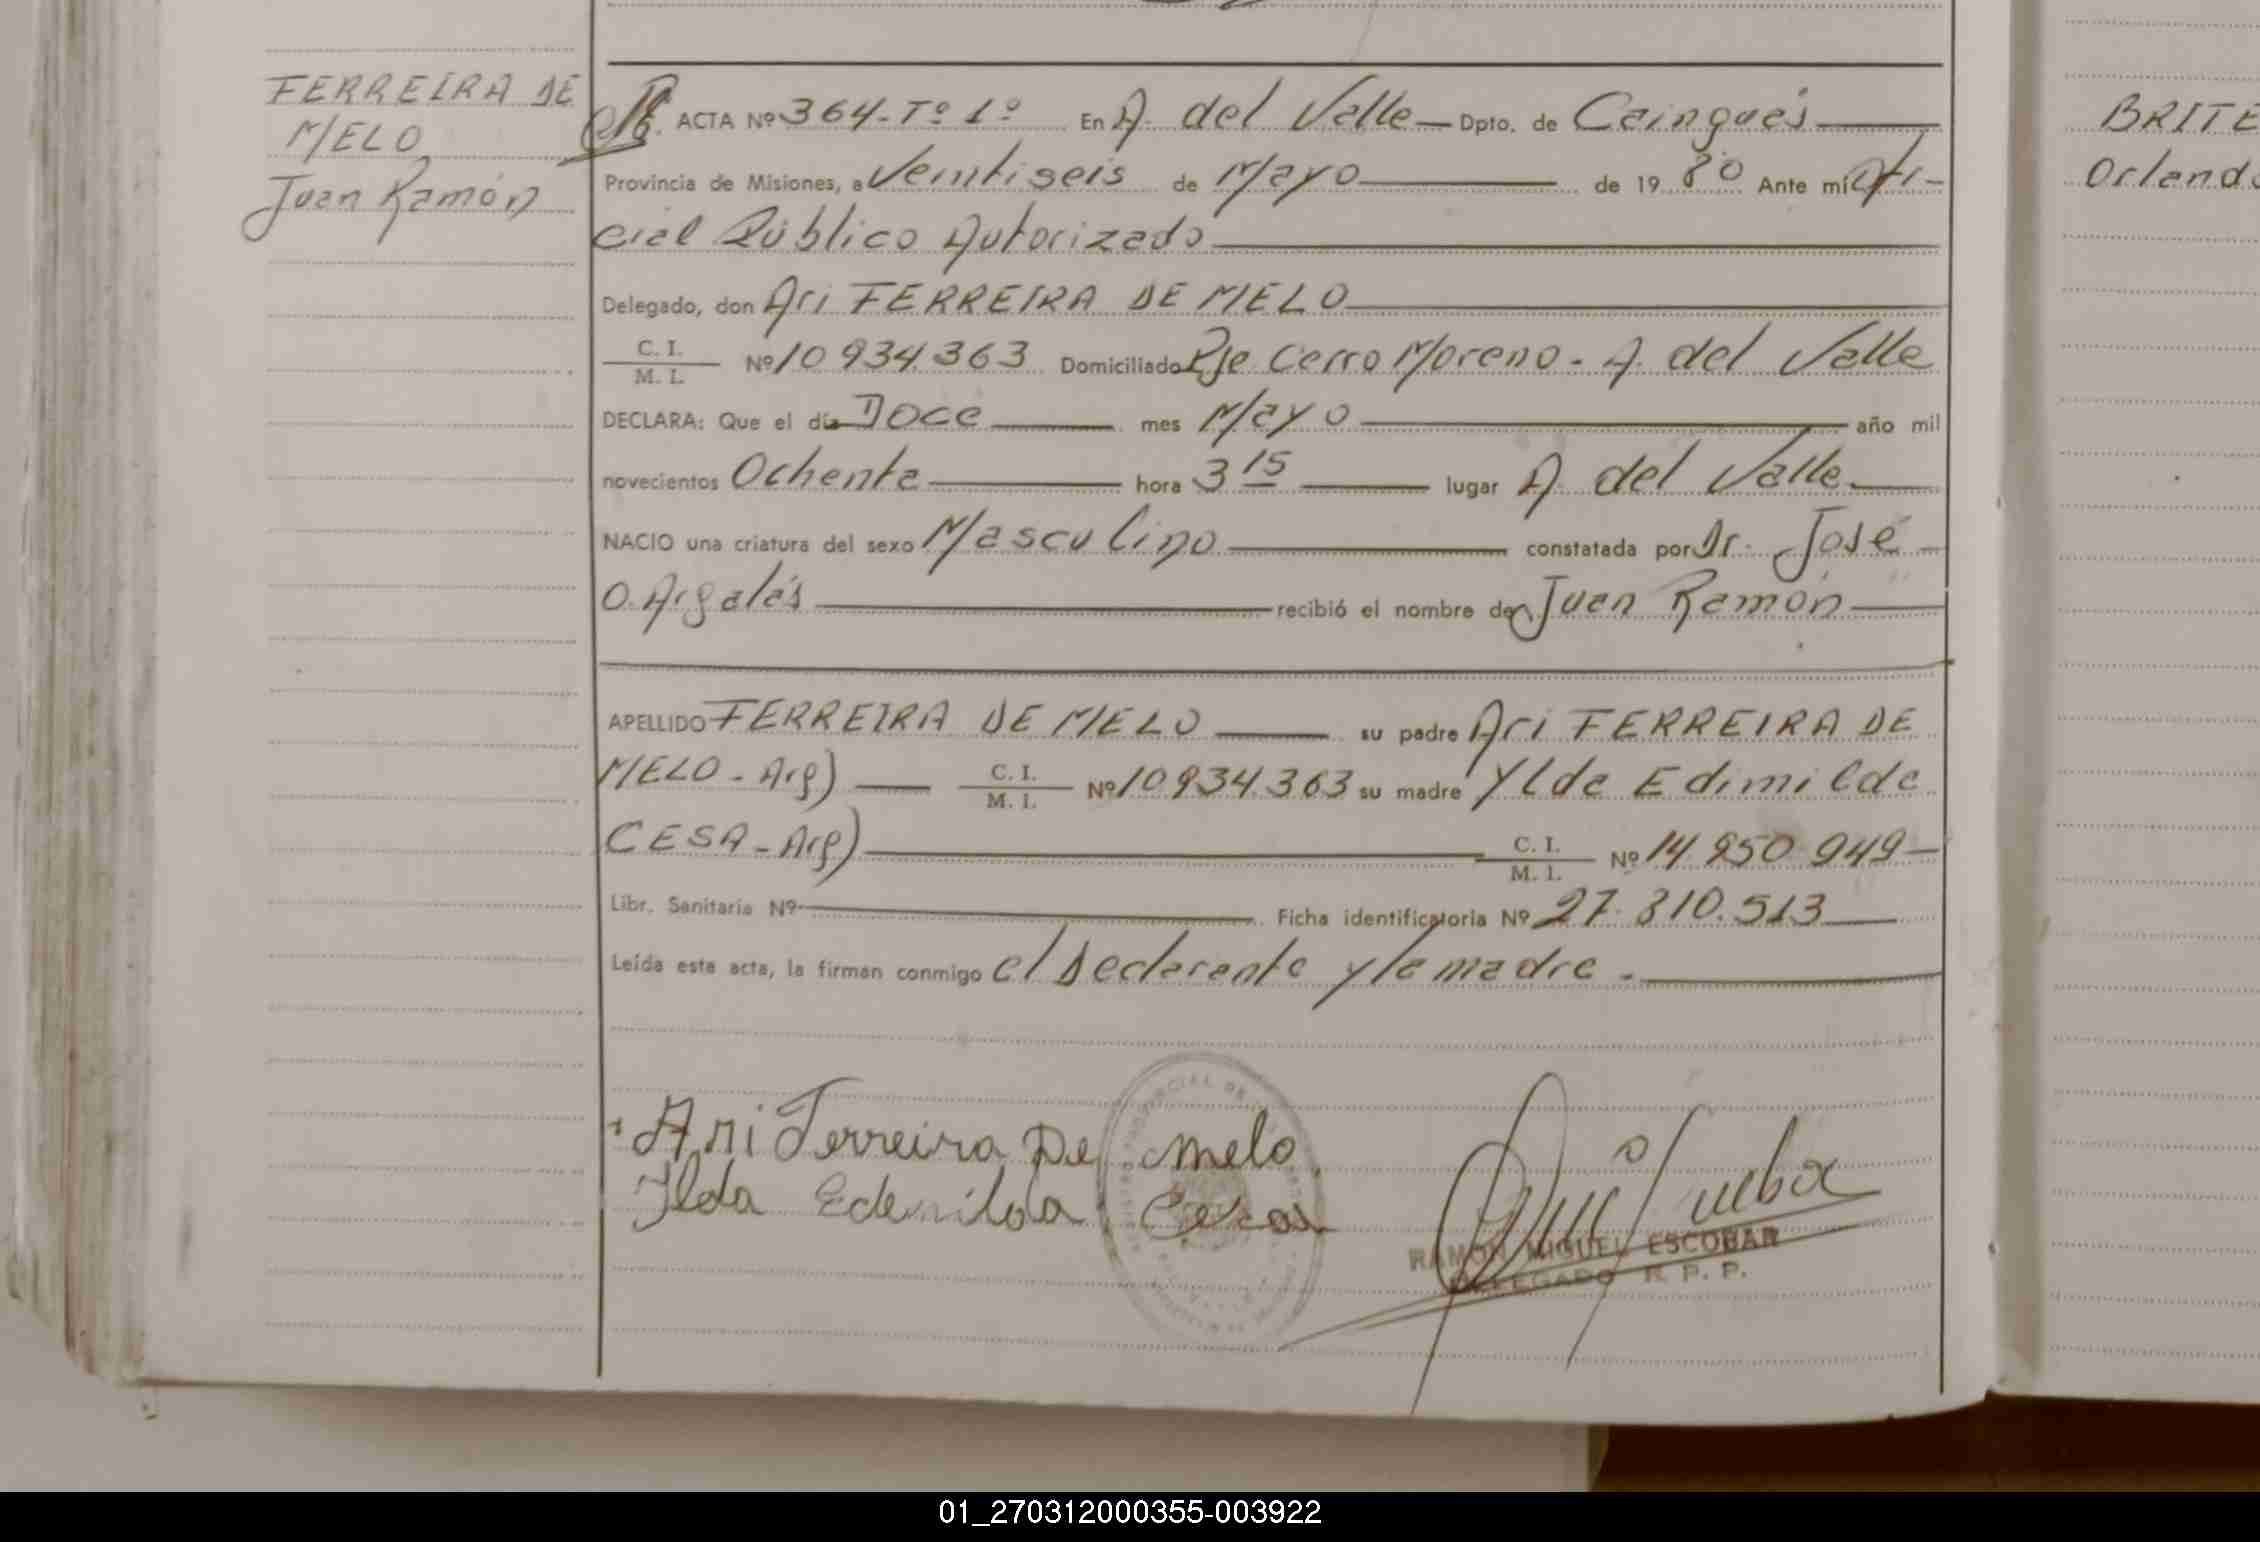 FERREIRA DE
MELO
Juan Ramón
ACTA Nº 364-Tº 1º En A. del Valle Dpto. de Cainguás
Provincia de Misiones, a Veintiseis de Mayo de 19 80 Ante mí Ofi-
cial Público Autorizado
Delegado, don Ari FERREIRA DE MELO
C. I. / M. I. Nº 10 934.363 Domiciliado Pje Cerro Moreno - A. del Valle
DECLARA: Que el día Doce mes Mayo año mil
novecientos Ochenta hora 3 15 lugar A. del Valle
NACIO una criatura del sexo Masculino constatada por Dr. José
O. Argalás recibió el nombre de Juan Ramón
APELLIDO FERREIRA DE MELO su padre Ari FERREIRA DE
MELO - Arg) C. I. / M. I. Nº 10934.363 su madre Ylda Edimilda
CESA - Arg) C. I. / M. I. Nº 14.950 949
Libr. Sanitaria Nº Ficha identificatoria Nº 27.810.513
Leída esta acta, la firman conmigo el Declarante y la madre.
Ari Ferreira De Melo
Ilda Edenilda
RAMON MIGUEL ESCOBAR
DELEGADO R. P. P.
BRITE
Orlando
01_270312000355-003922